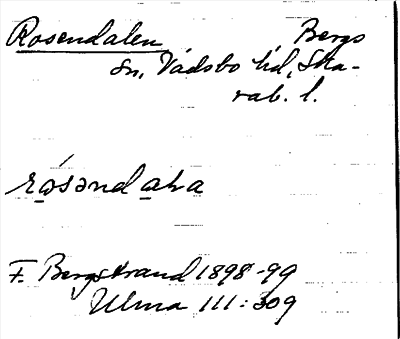 Rosendalen Bergs
sn, Vadsbo hd, Ska-
rab. l.
rósəndaka
F. Bergstrand 1898-99
Ulma 111:309